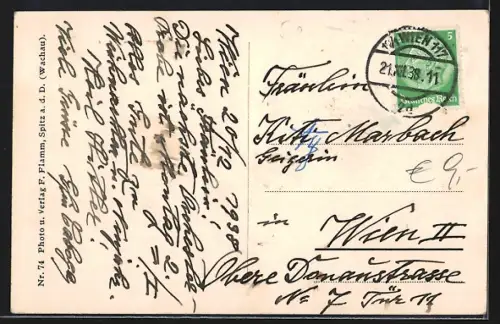 Wien 20/12 1938
Liebes Fräulein!
Die nächste Orchester-
Probe ist Montag 2./I
Alles Gute zu
Weihnachten u. Neujahr
Heil Hitler!
Viele Grüße
Nr. 74 Photo u. Verlag F. Flamm, Spitz a. d. D. (Wachau).
WIEN 117
21.XII.38.11
5
Deutsches Reich
Fräulein
Kitty Marbach
Geigerin
in
Wien II
Obere Donaustrasse
No 7 Tür 11
€ 9,-